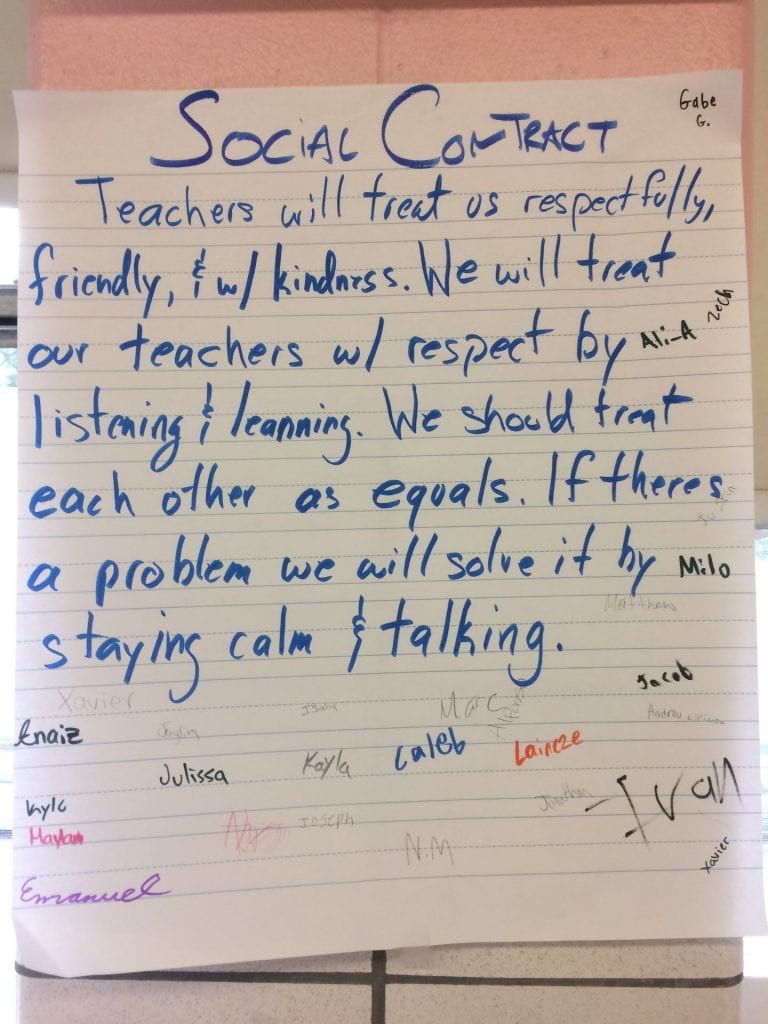 Gabe
G.
SOCIAL CONTRACT
Teachers will treat us respectfully,
friendly, & w/ kindness. We will treat
Zech
our teachers w/ respect by
Ali-A
listening & leanning. We should treat
each other as equals. If theres
Justin
a problem we will solve it by
Milo
Matthew
staying calm & talking.
Jacob
Xavier
Isaly
Marc
Andrew
Enaiz
Jaylin
Caleb
Laineze
Julissa
Kayla
Jonathan
Ivan
Kyle
Joseph
N.M
Xavier
Emanuel